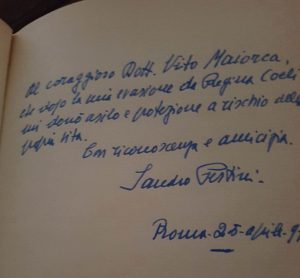 Al coraggioso Dott. Vito Maiorca,
che dopo la mia evasione da Regina Coeli
mi donò asilo e protezione a rischio della
propria vita.
Con riconoscenza e amicizia.
Sandro Pertini.
Roma 25 aprile